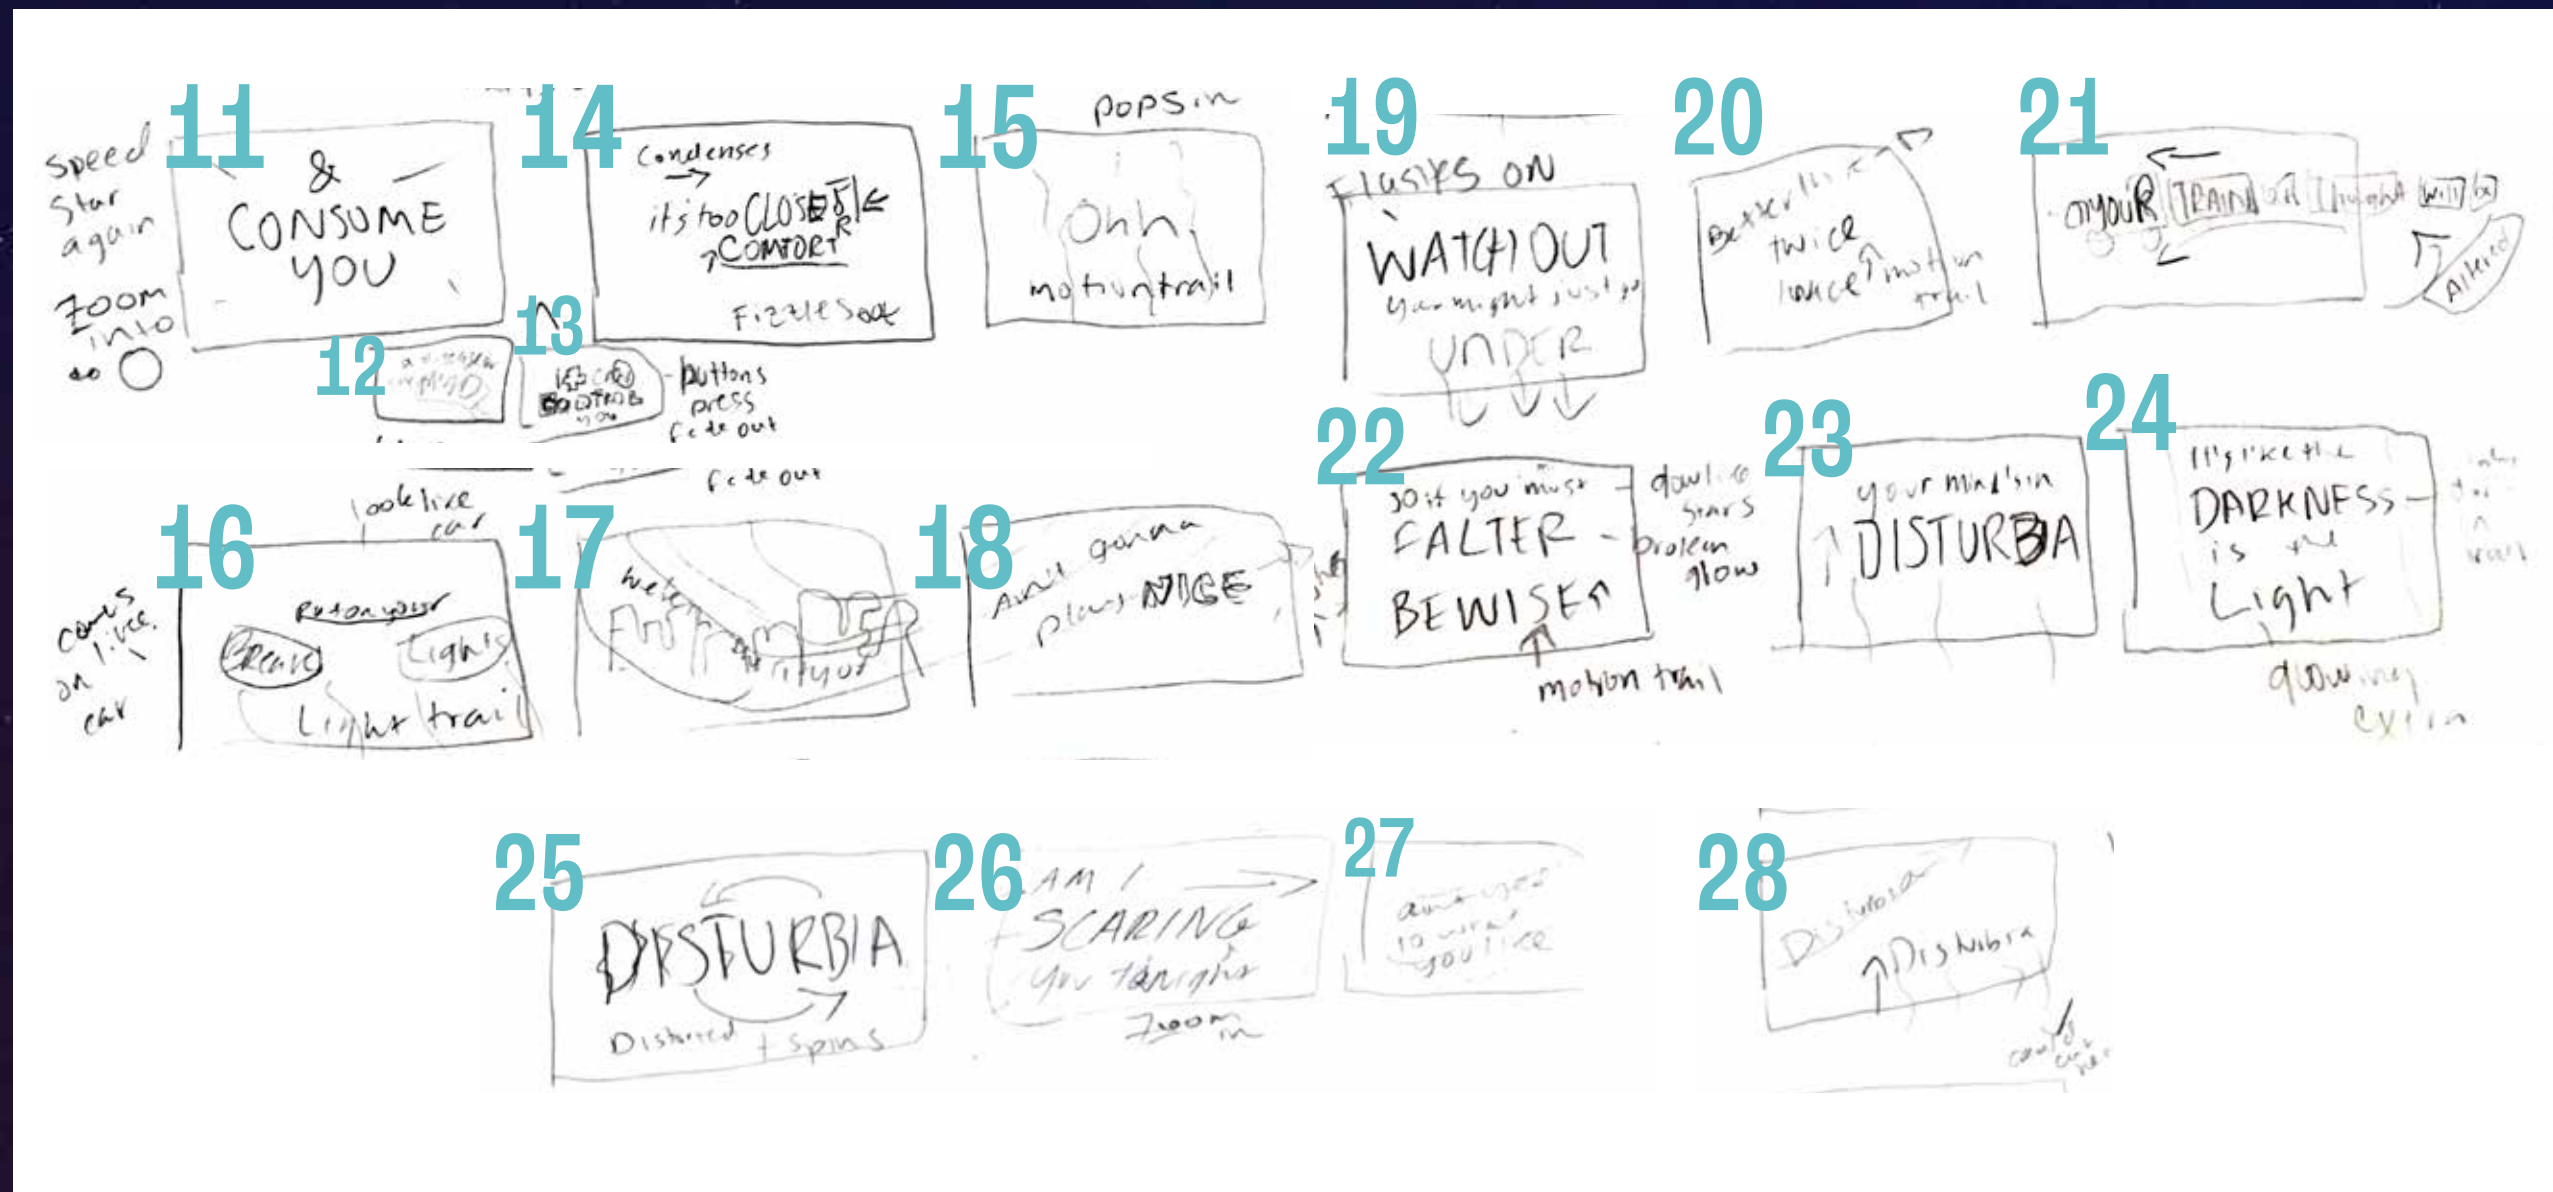 11
speed
star
again
zoom
into
&
CONSUME
YOU
12
13
CONTROL
you
buttons
press
fade out
14
Condenses
it's too CLOSE F
R
COMFORT
Fizzles out
15
pops in
Ohh
motion trail
16
look like
car
comes
on like
on
car
Put on your
Break Lights
Light trail
17
fade out
18
Ain't gonna
play NICE
19
Flashes ON
WATCH OUT
you might just go
UNDER
20
Better think
twice
twice
motion
trail
21
on your TRAIN of thought will be
Altered
22
so if you must
FALTER
BE WISE
glow like
stars
broken
glow
motion trail
23
your mind's in
DISTURBIA
24
It's like the
DARKNESS
is the
Light
glowing
25
DISTURBIA
Distorted + spins
26
AM I
SCARING
you tonight
zoom
in
27
you like
28
Disturbia
Disturbia